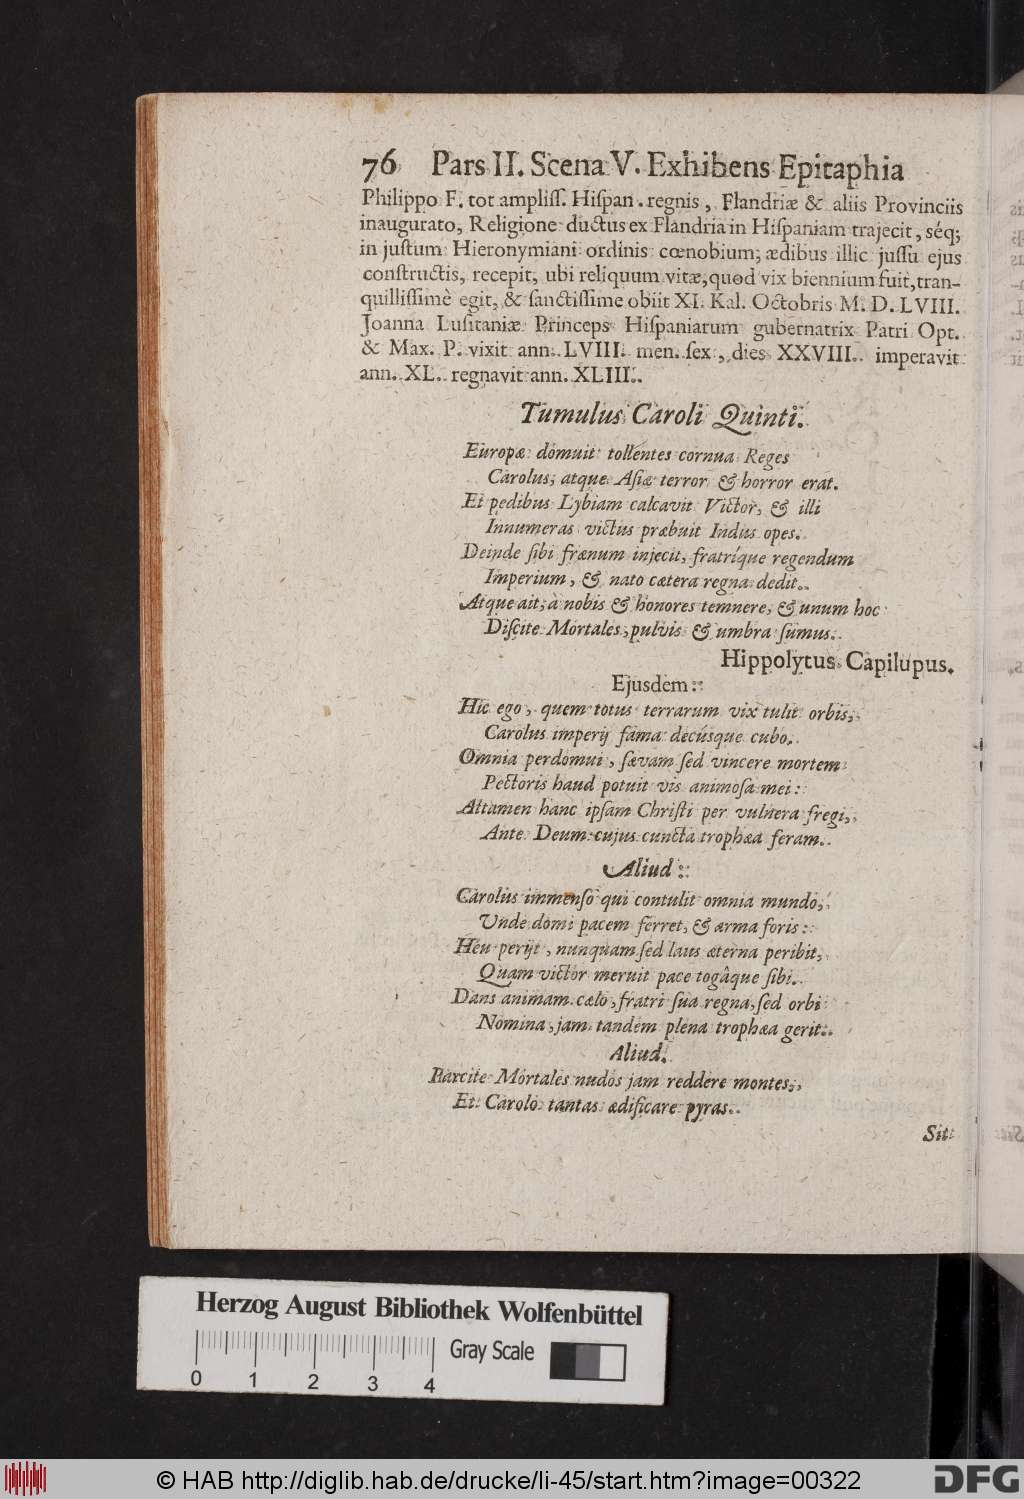 76 Pars II. Scena V. Exhibens Epitaphia
Philippo F. tot ampliſſ. Hiſpan. regnis, Flandriæ & aliis Provinciis
inaugurato, Religione ductus ex Flandria in Hiſpaniam trajecit, séq;
in juſtum Hieronymiani ordinis cœnobium, ædibus illic juſſu ejus
conſtructis, recepit, ubi reliquum vitæ, quod vix biennium fuit, tran-
quilliſſimè egit, & ſanctiſſime obiit XI. Kal. Octobris M. D. LVIII.
Joanna Luſitaniæ Princeps Hiſpaniarum gubernatrix Patri Opt.
& Max. P. vixit ann. LVIII. men. ſex, dies XXVIII. imperavit
ann. XL. regnavit ann. XLIII.
Tumulus Caroli Quinti.
Europæ domuit tollentes cornua Reges
Carolus, atque Aſiæ terror & horror erat.
Et pedibus Lybiam calcavit Victor, & illi
Innumeras victus præbuit Indus opes.
Deinde ſibi frænum injecit, fratríque regendum
Imperium, & nato cætera regna dedit.
Atque ait, à nobis & honores temnere, & unum hoc
Diſcite Mortales, pulvis & umbra ſumus.
Hippolytus Capilupus.
Ejusdem:
Hic ego, quem totus terrarum vix tulit orbis,
Carolus imperij fama decúsque cubo.
Omnia perdomui, ſævam ſed vincere mortem
Pectoris haud potuit vis animoſa mei:
Attamen hanc ipſam Chriſti per vulnera fregi,
Ante Deum cujus cuncta trophæa feram.
Aliud:
Carolus immenſo qui contulit omnia mundo,
Unde domi pacem ferret, & arma foris:
Heu perijt, nunquam ſed laus æterna peribit,
Quam victor meruit pace togâque ſibi.
Dans animam cælo, fratri ſua regna, ſed orbi
Nomina, jam tandem plena trophæa gerit.
Aliud.
Parcite Mortales nudos jam reddere montes,
Et Carolo tantas ædificare pyras.
Sit
Herzog August Bibliothek Wolfenbüttel
Gray Scale
0 1 2 3 4
© HAB http://diglib.hab.de/drucke/li-45/start.htm?image=00322
DFG